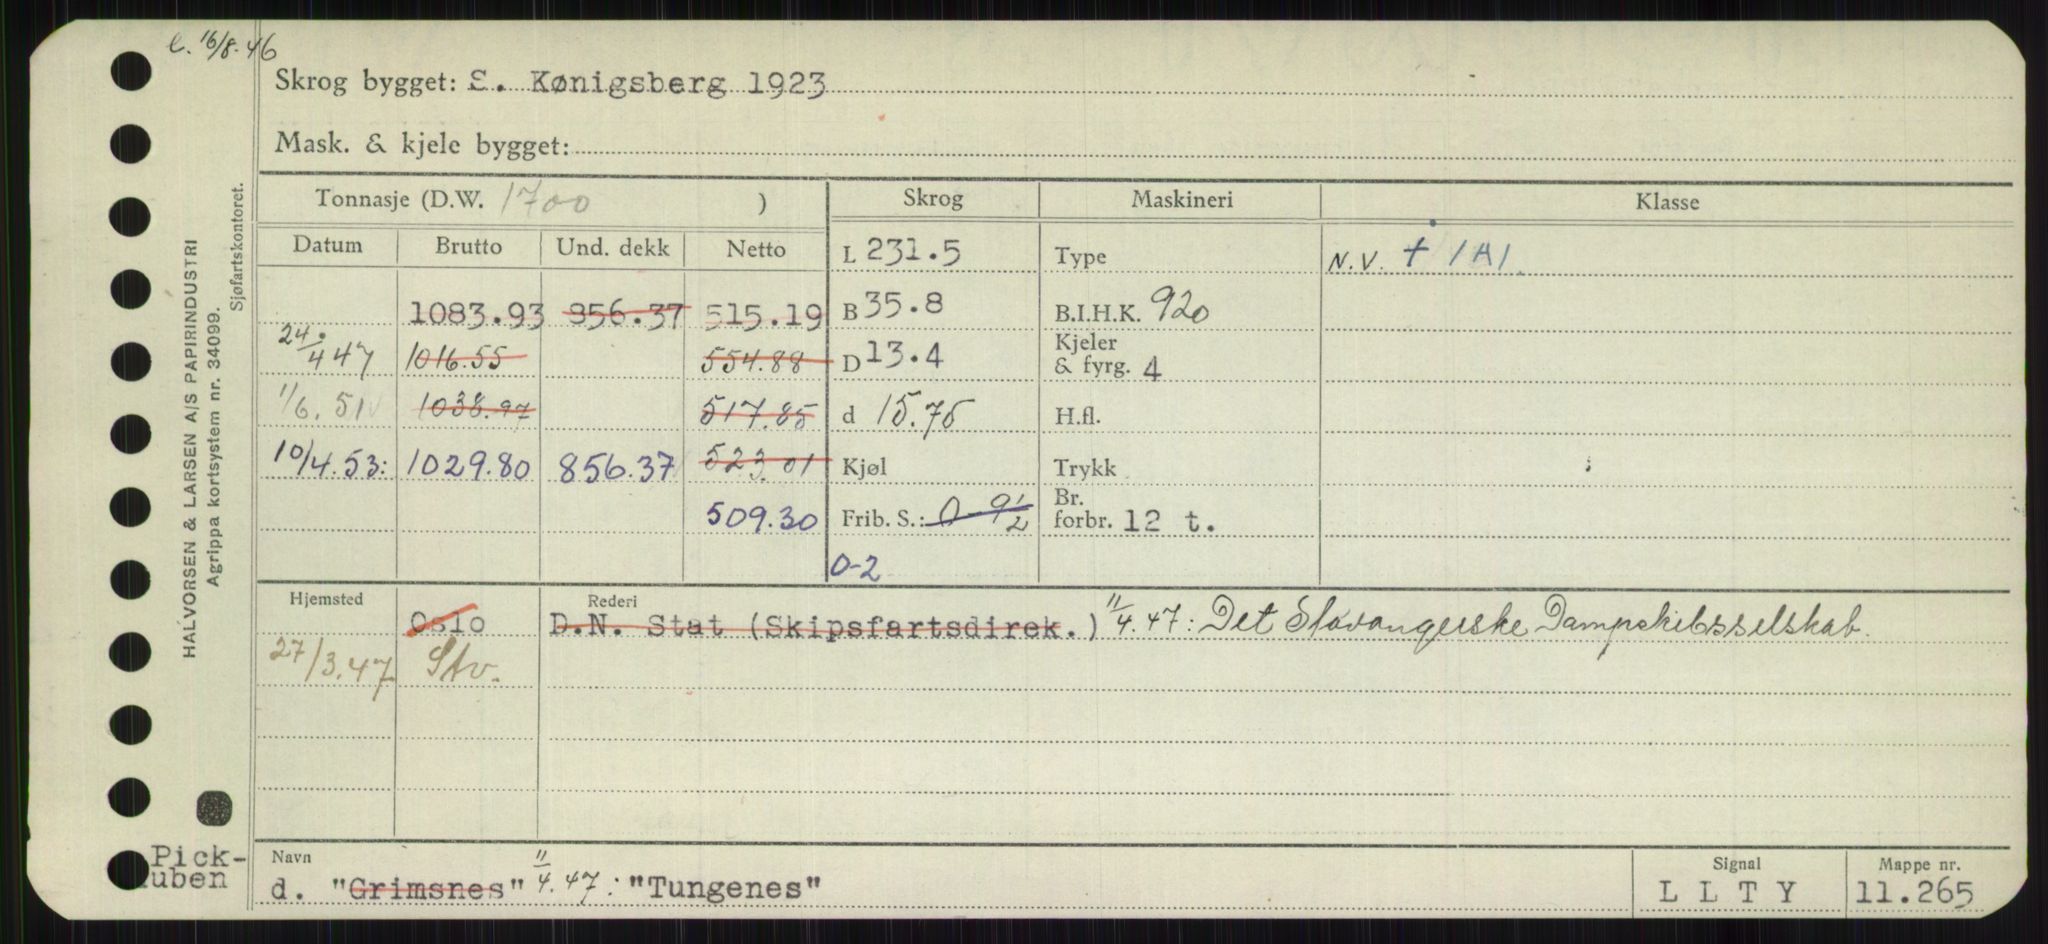 e. 16/8.46
Skrog bygget: S. Kønigsberg 1923
Mask. & kjele bygget:
Tonnasje (D.W. 1700 )
Skrog
Maskineri
Klasse
Datum Brutto Und. dekk Netto
L 231.5
Type
N.V. + 1A1
1083.93 856.37 515.19
B 35.8
B.I.H.K. 920
24/4 47 1016.55 554.88
D 13.4
Kjeler
& fyrg. 4
1/6. 51 1038.97 517.85
d 15.75
H.fl.
10/4.53: 1029.80 856.37 523.01
Kjøl
Trykk
509.30
Frib. S.: 0-9½
Br.
forbr. 12 t.
0-2
Hjemsted
Rederi
Oslo D.N. Stat (Skipsfartsdirek.) 11/4.47: Det Stavangerske Dampskibsselskab.
27/3.47 Stv.
Navn
d. "Grimsnes" 11/4.47: "Tungenes"
Signal
L L T Y
Mappe nr.
11.265
HALVORSEN & LARSEN A/S PAPIRINDUSTRI
Agrippa kortsystem nr. 34099.
Sjøfartskontoret.
Pick-
uben